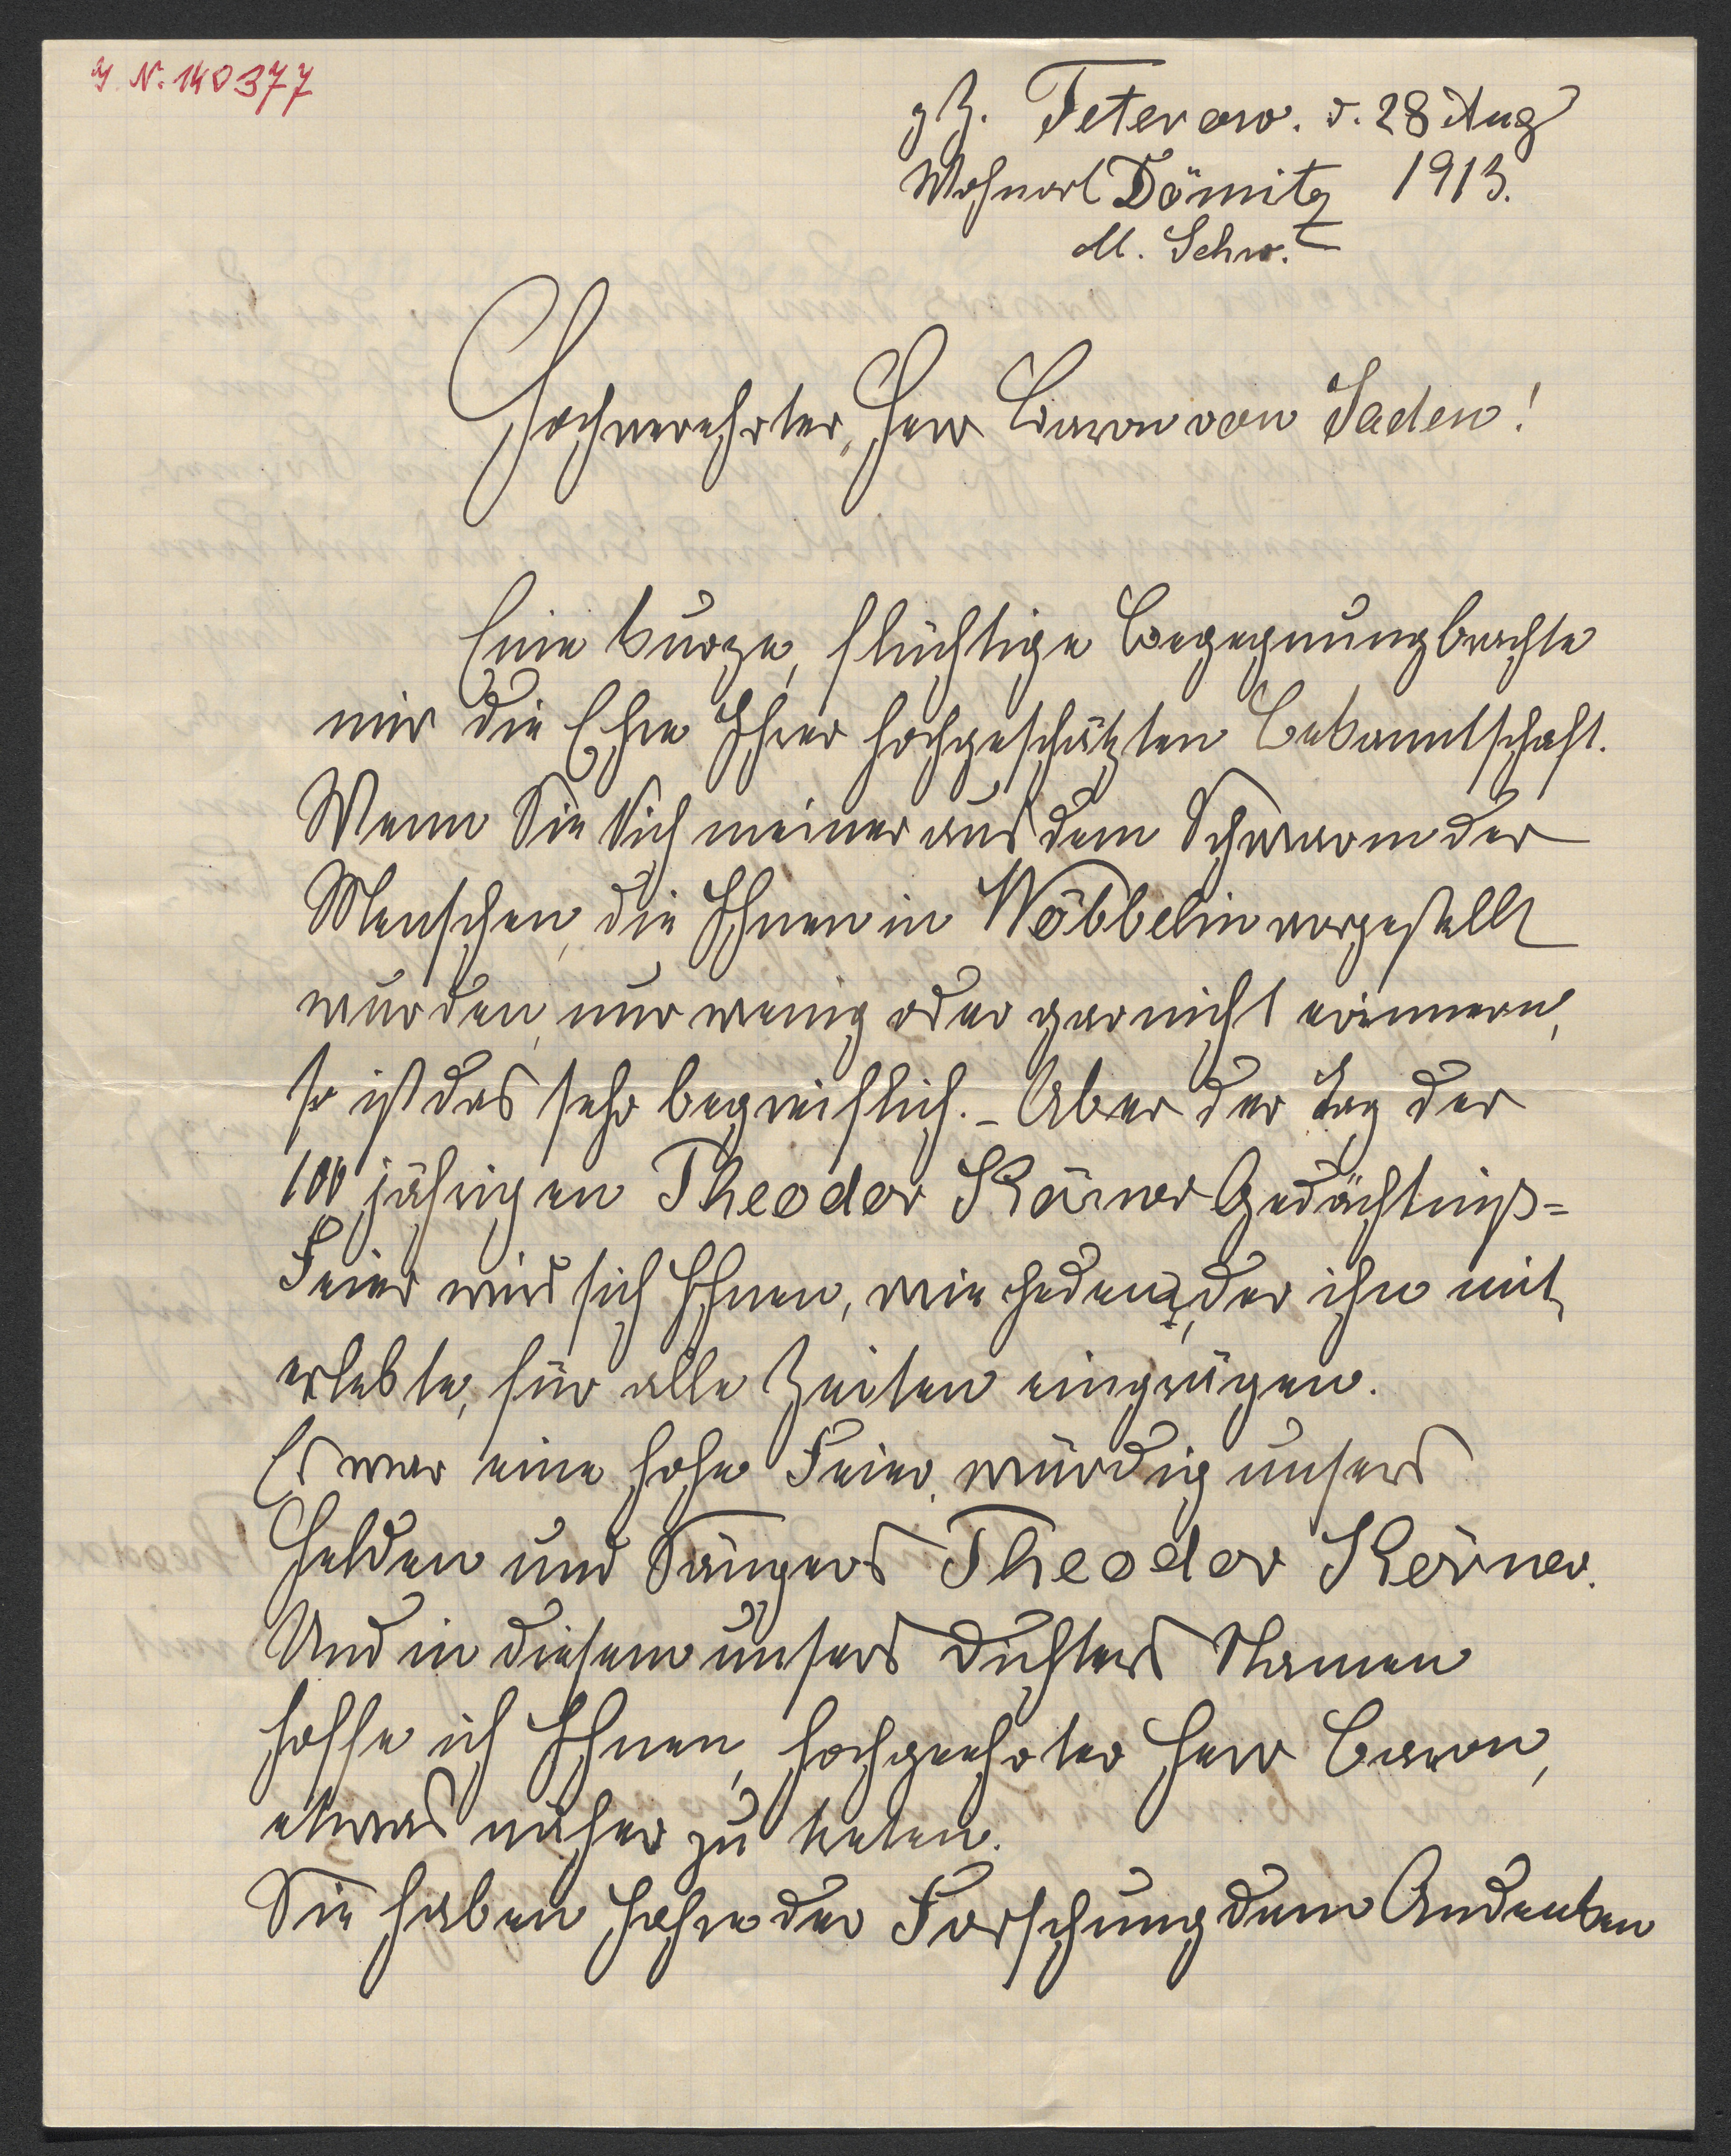 J. N. 140377
z Z. Teterow. d. 28 Aug
Wohnort Dömitz 1913.
M. Schw.
Hochverehrter, Herr Baron von Jaden!
Eine kurze, flüchtige Begegnung brachte
mir die Ehre Ihrer hochgeschätzten Bekanntschaft.
Wenn Sie Sich meiner aus dem Schwarm der
Menschen, die Ihnen in Wöbbelin vorgestellt
wurden, nur wenig oder garnicht erinnern,
so ist das sehr begreiflich. – Aber der Tag der
100 jährigen Theodor Körner Gedächtniß-
Feier wird sich Ihnen, wie Jedem, der ihn mit
erlebte, für alle Zeiten einprägen.
Es war eine hohe Feier, würdig unsers
Helden und Sängers Theodor Körner.
Und in diesem unsers Dichters Namen
hoffe ich Ihnen, hochgeehrter Herr Baron,
etwas näher zu treten.
Sie haben Jahre der Forschung dem Andenken